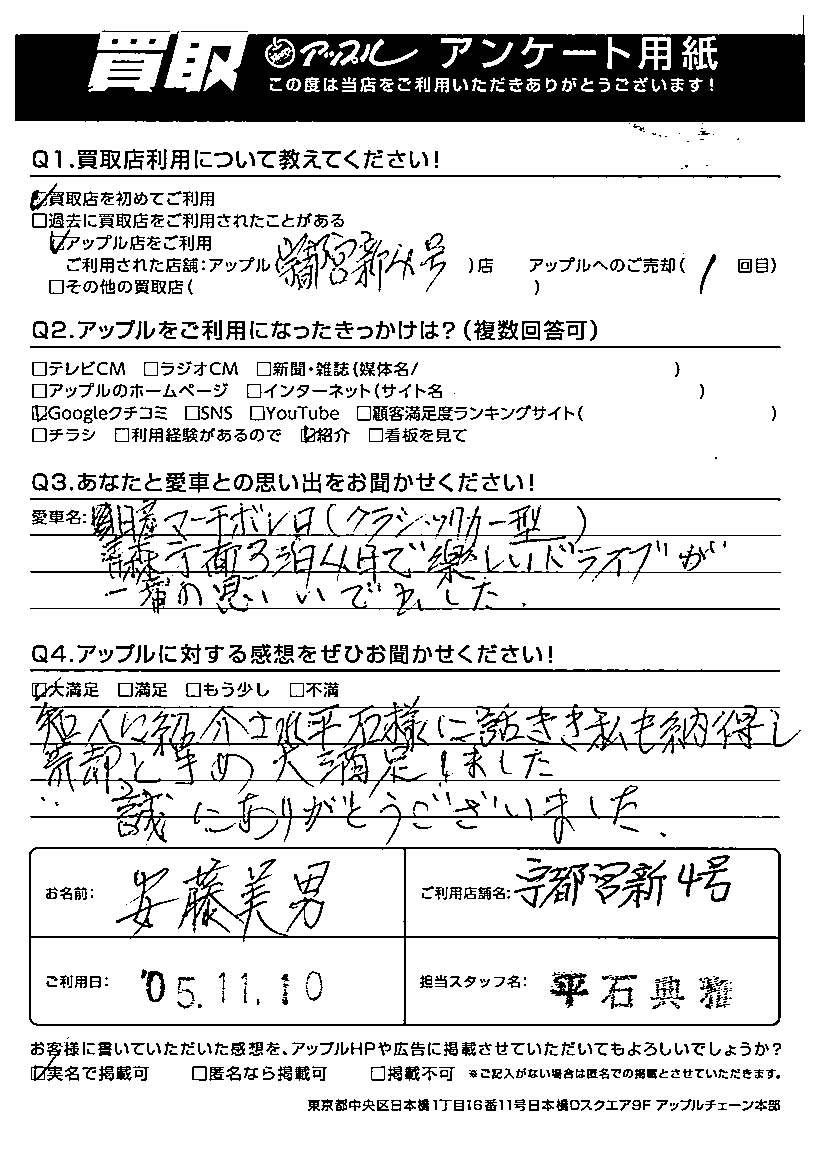 買取 アップル アンケート用紙
この度は当店をご利用いただきありがとうございます!
Q1.買取店利用について教えてください!
☑買取店を初めてご利用
□過去に買取店をご利用されたことがある
☑アップル店をご利用
ご利用された店舗:アップル(宇都宮新4号)店 アップルへのご売却(1回目)
□その他の買取店( )
Q2.アップルをご利用になったきっかけは?(複数回答可)
□テレビCM □ラジオCM □新聞・雑誌(媒体名/ )
□アップルのホームページ □インターネット(サイト名 )
☑Googleクチコミ □SNS □YouTube □顧客満足度ランキングサイト( )
□チラシ □利用経験があるので ☑紹介 □看板を見て
Q3.あなたと愛車との思い出をお聞かせください!
愛車名: 日産マーチボレロ(クラシックカー型)
青森方面3泊4日で楽しいドライブが
一番の思いいでした.
Q4.アップルに対する感想をぜひお聞かせください!
☑大満足 □満足 □もう少し □不満
知人に紹介され平石様に話きき私も納得し
売却を手め大満足しました
誠にありがとうございました.
お名前: 安藤美男
ご利用店舗名: 宇都宮新4号
ご利用日: '05.11.10
担当スタッフ名: 平石典雅
お客様に書いていただいた感想を、アップルHPや広告に掲載させていただいてもよろしいでしょうか?
☑実名で掲載可 □匿名なら掲載可 □掲載不可 ※ご記入がない場合は匿名での掲載とさせていただきます。
東京都中央区日本橋1丁目16番11号日本橋Dスクエア9F アップルチェーン本部